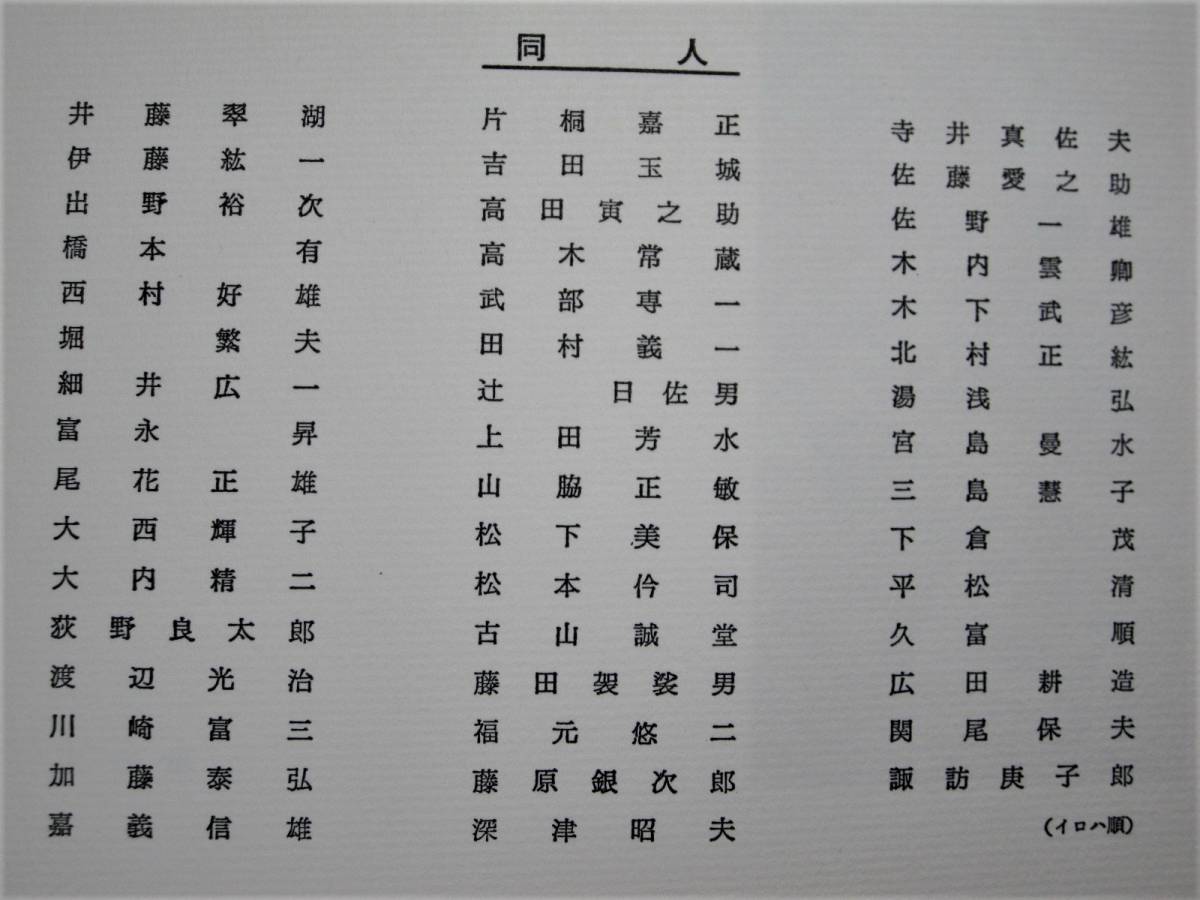 同人
井藤翠湖
伊藤紘一
出野裕次
橋本有
西村好雄
堀繁夫
細井広一
富永昇
尾花正雄
大西輝子
大内精二
荻野良太郎
渡辺光治
川崎富三
加藤泰弘
嘉義信雄
片桐嘉正
吉田玉城
高田寅之助
高木常蔵
武部専一
田村義一
辻日佐男
上田芳水
山脇正敏
松下美保
松本伶司
古山誠堂
藤田袈裟男
福元悠二
藤原銀次郎
深津昭夫
寺井真佐夫
佐藤愛之助
佐野一雄
木内雲卿
木下武彦
北村正紘
湯浅弘
宮島曼水
三島慧子
下倉茂
平松清
久富順
広田耕造
関尾保夫
諏訪庚子郎
(イロハ順)